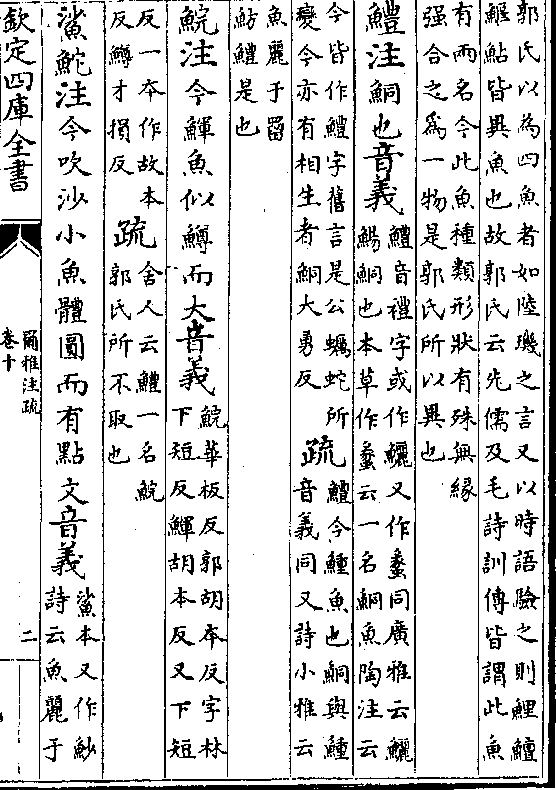 郭氏以為四魚者如陸璣之言又以時語驗之則鯉鱣
鰋鮎皆異魚也故郭氏云先儒及毛詩訓傳皆謂此魚
有兩名今此魚種類形狀有殊無緣
强合之為一物是郭氏所以異也
鱧注鮦也音義鱧音禮字或作鱺又作蠡同廣雅云鱺
鯣鮦也本草作蠡云一名鮦魚陶注云
今皆作鱧字舊言是公蠣蛇所
變今亦有相生者鮦大勇反疏鱧今鱯魚也鮦與鱯
音義同又詩小雅云
魚麗于罶
魴鱧是也
鯇注今鯶魚似鱒而大音義鯇華板反郭胡本反字林
下短反鯶胡本反又下短
反一本作故本
反鱒才損反疏舍人云鱧一名鯇
郭氏所不取也
鯊鮀注今吹沙小魚體圓而有點文音義鯊本又作魦
詩云魚麗于
欽定四庫全書
爾雅注疏
卷十
二